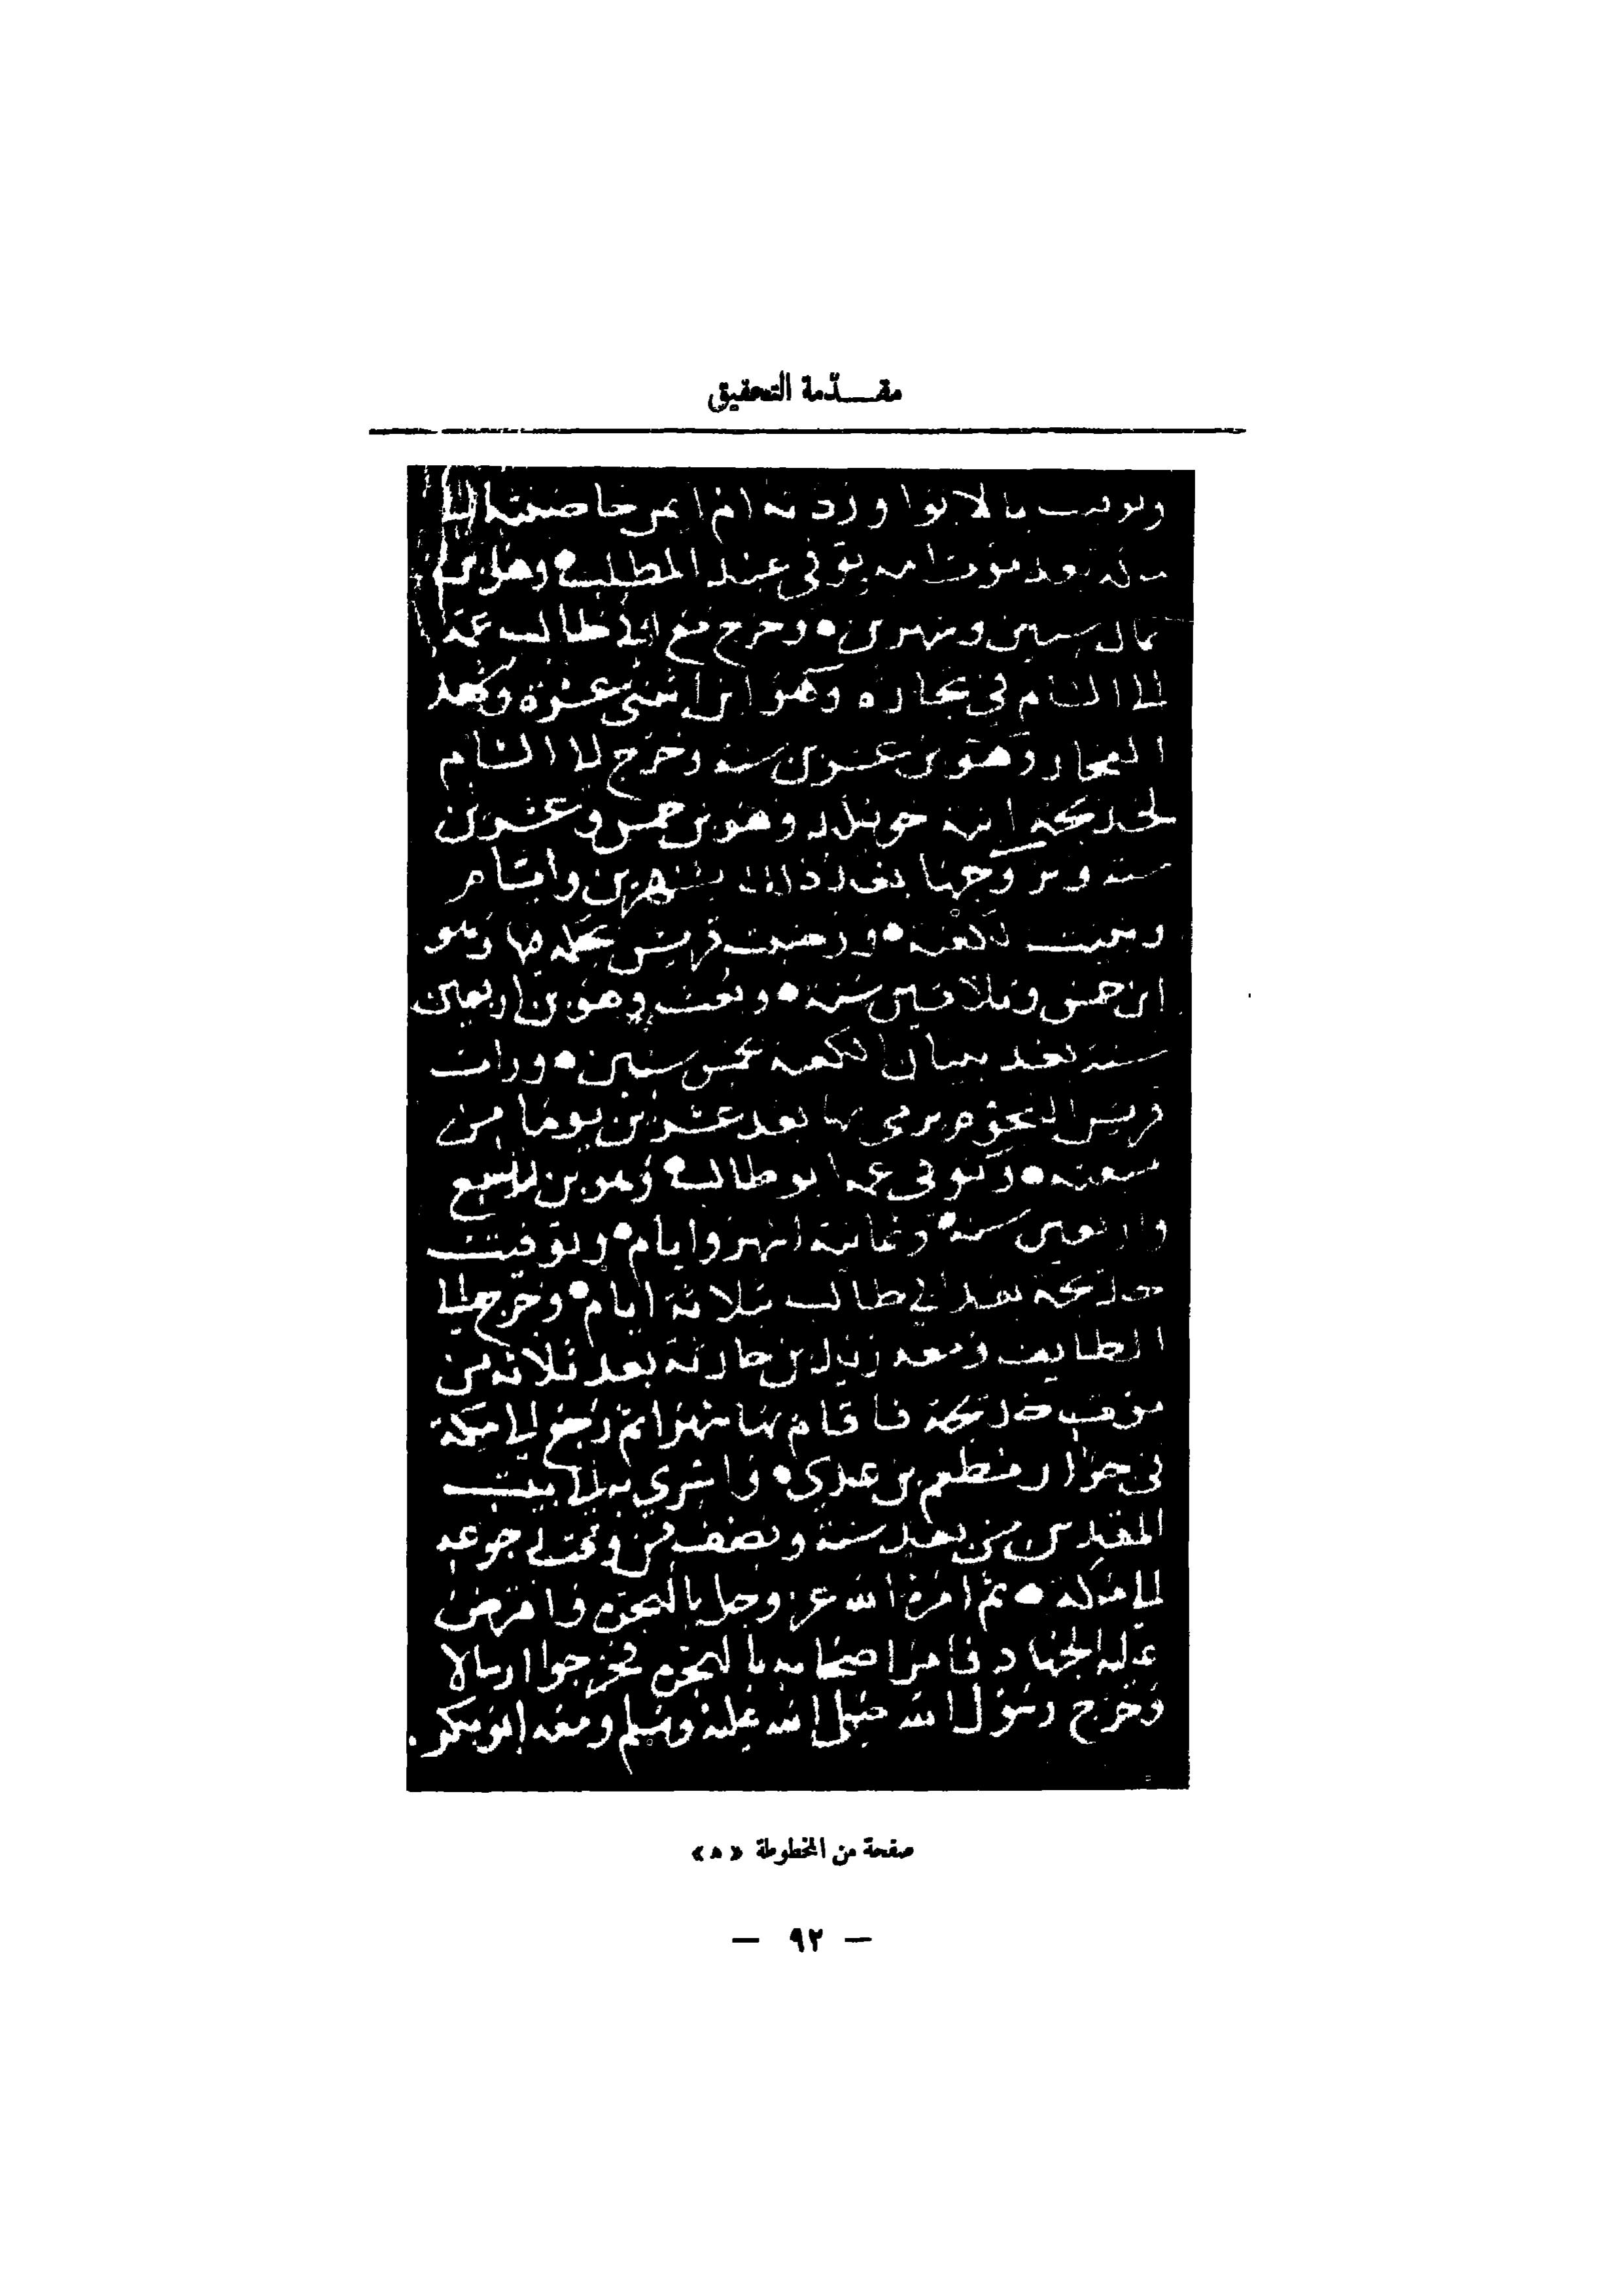 مقـــدّمة التحقيق
وتوفيت بالابوا وردته ام ايمن حاضنته الى
مكة بعد موت امه توفي عبد المطلب وهو ابن
ثمان سنين وشهرين وخرج مع ابي طالب عمه
الى الشام في تجارة وهو ابن اثنتي عشرة وشهد
الفجار وهو بن عشرين سنة وخرج الى الشام
لخديجة ابنة خويلد وهو بن خمس وعشرين
سنة وتزوجها بعد ذلك بشهرين وايام
وبنيت الكعبة ورضيت قريش بحكمه فيها وهو
ابن خمس وثلاثين سنة وبعث وهو بن اربعين
سنة بعد بنيان الكعبة بخمس سنين ورات
قريش النجوم يرمي بها بعد عشرين يوما من
مبعثه وتوفي عمه ابو طالب وهو بن تسع
واربعين سنة وثمانية اشهر وايام وتوفيت
خديجة بعد ابي طالب بثلاثة ايام وخرج الى
الطايف ومعه زيد بن حارثة بعد ثلاثة من
موت خديجة فاقام بها شهرا ثم رجع الى مكة
في جوار مطعم بن عدي واسري به الى بيت
المقدس من بعد سنة ونصف من وقت رجوعه
الى مكة ثم امره الله عز وجل بالهجرة وافترض
عليه الجهاد فامر اصحابه بالهجرة فخرجوا ارسالا
وخرج رسول الله صلى الله عليه وسلم ومعه ابو بكر
صفحة من المخطوطة « ه »
— ٩٢ —